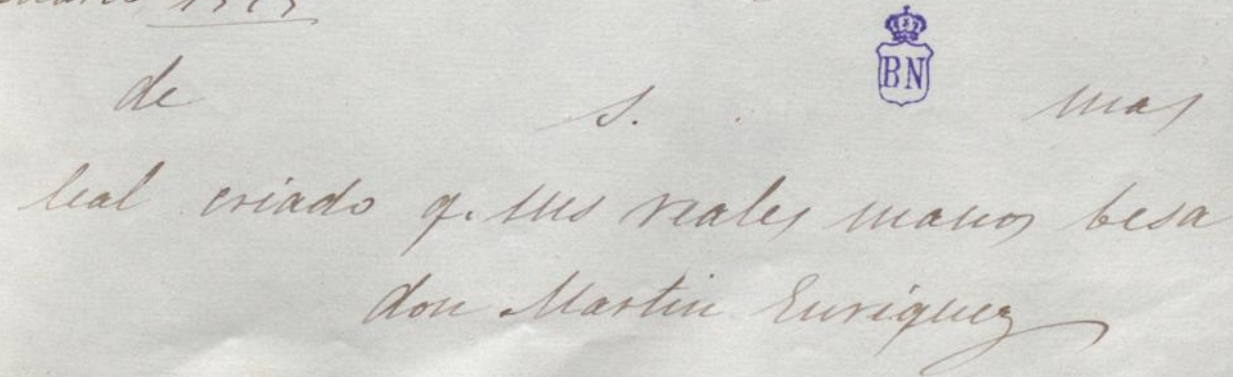 BN
de S. mas
leal criado q. sus reales manos besa
don Martin Enriquez